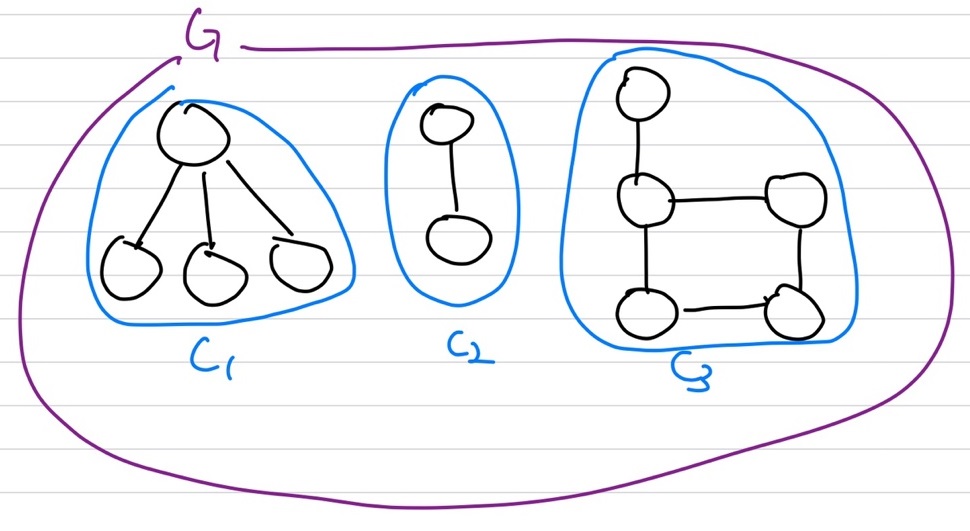 G
C1
C2
C3